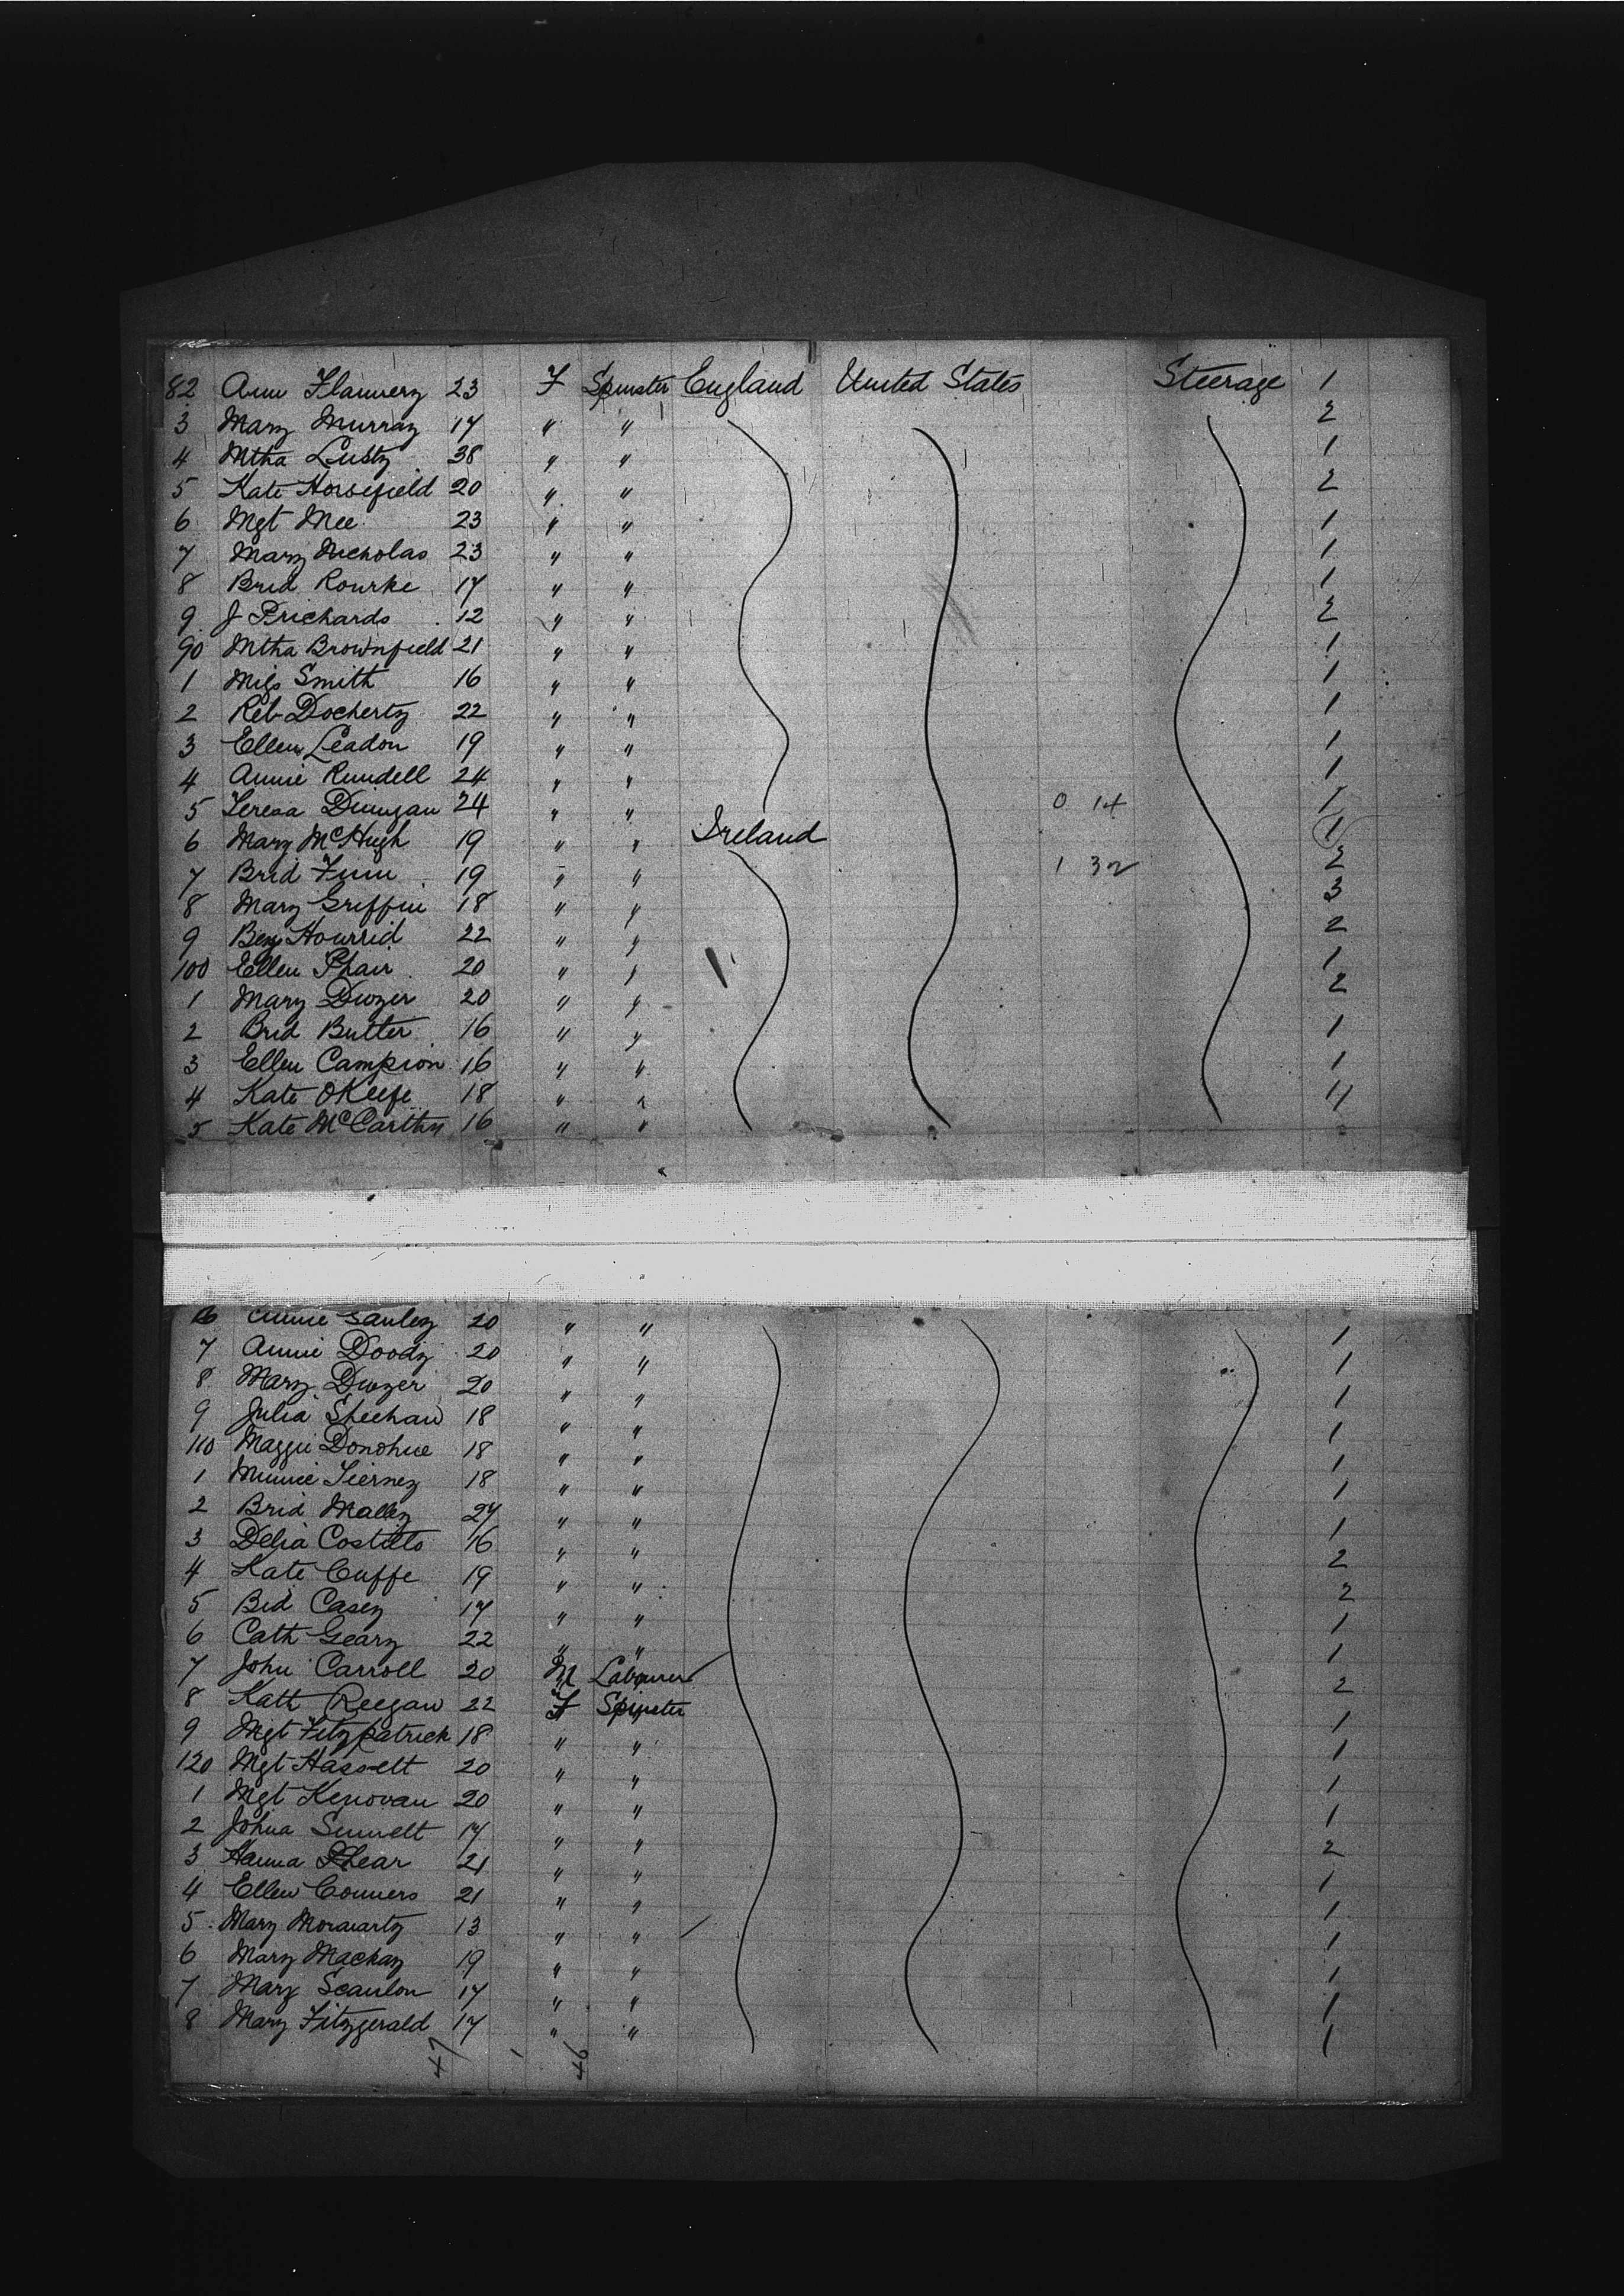 82 Ann Flannery 23 F Spinster England United States Steerage 1
3 Mary Murray 17 " " 2
4 Mtha Lusty 38 " " 1
5 Kate Horsefield 20 " " 2
6 Mgt Mee 23 " " 1
7 Mary Nicholas 23 " " 1
8 Brid Rourke 17 " " 1
9 J Prichards 12 " " 2
90 Mtha Brownfield 21 " " 1
1 Miss Smith 16 " " 1
2 Reb Docherty 22 " " 1
3 Ellen Leadon 19 " " 1
4 Annie Rundell 24 " " 1
5 Teresa 24 " " 0 14 1
6 Mary McHugh 19 " " Ireland 1
7 Brid Finn 19 " " 1 32 2
8 Mary Griffin 18 " " 3
9 22 " " 2
100 Ellen Phair 20 " " 1
1 Mary Dwyer 20 " " 2
2 Brid Butler 16 " " 1
3 Ellen Campion 16 " " 1
4 Kate OKeefe 18 " " 11
5 Kate McCarthy 16 " "
6 Annie Ganley 20 " " 1
7 Annie Doody 20 " " 1
8 Mary Dwyer 20 " " 1
9 Julia Sheehan 18 " " 1
110 Maggie Donohue 18 " " 1
1 Minnie Tierney 18 " " 1
2 Brid Malley 27 " " 1
3 Delia Costello 16 " " 2
4 Kate Cuffe 19 " " 2
5 Bid Casey 17 " " 1
6 Cath Geary 22 " " 1
7 John Carroll 20 M Labourer 2
8 Kath Reegan 22 F Spinster 1
9 Mgt Fitzpatrick 18 " " 1
120 Mgt Hassett 20 " " 1
1 Mgt Kenovan 20 " " 1
2 Johna 17 " " 2
3 Hanna Shear 21 " " 1
4 Ellen Conners 21 " " 1
5 Mary Moriarty 13 " " 1
6 Mary Mackay 19 " " 1
7 Mary Scanlon 17 " " 1
8 Mary Fitzgerald 17 " " 1
47 1 46